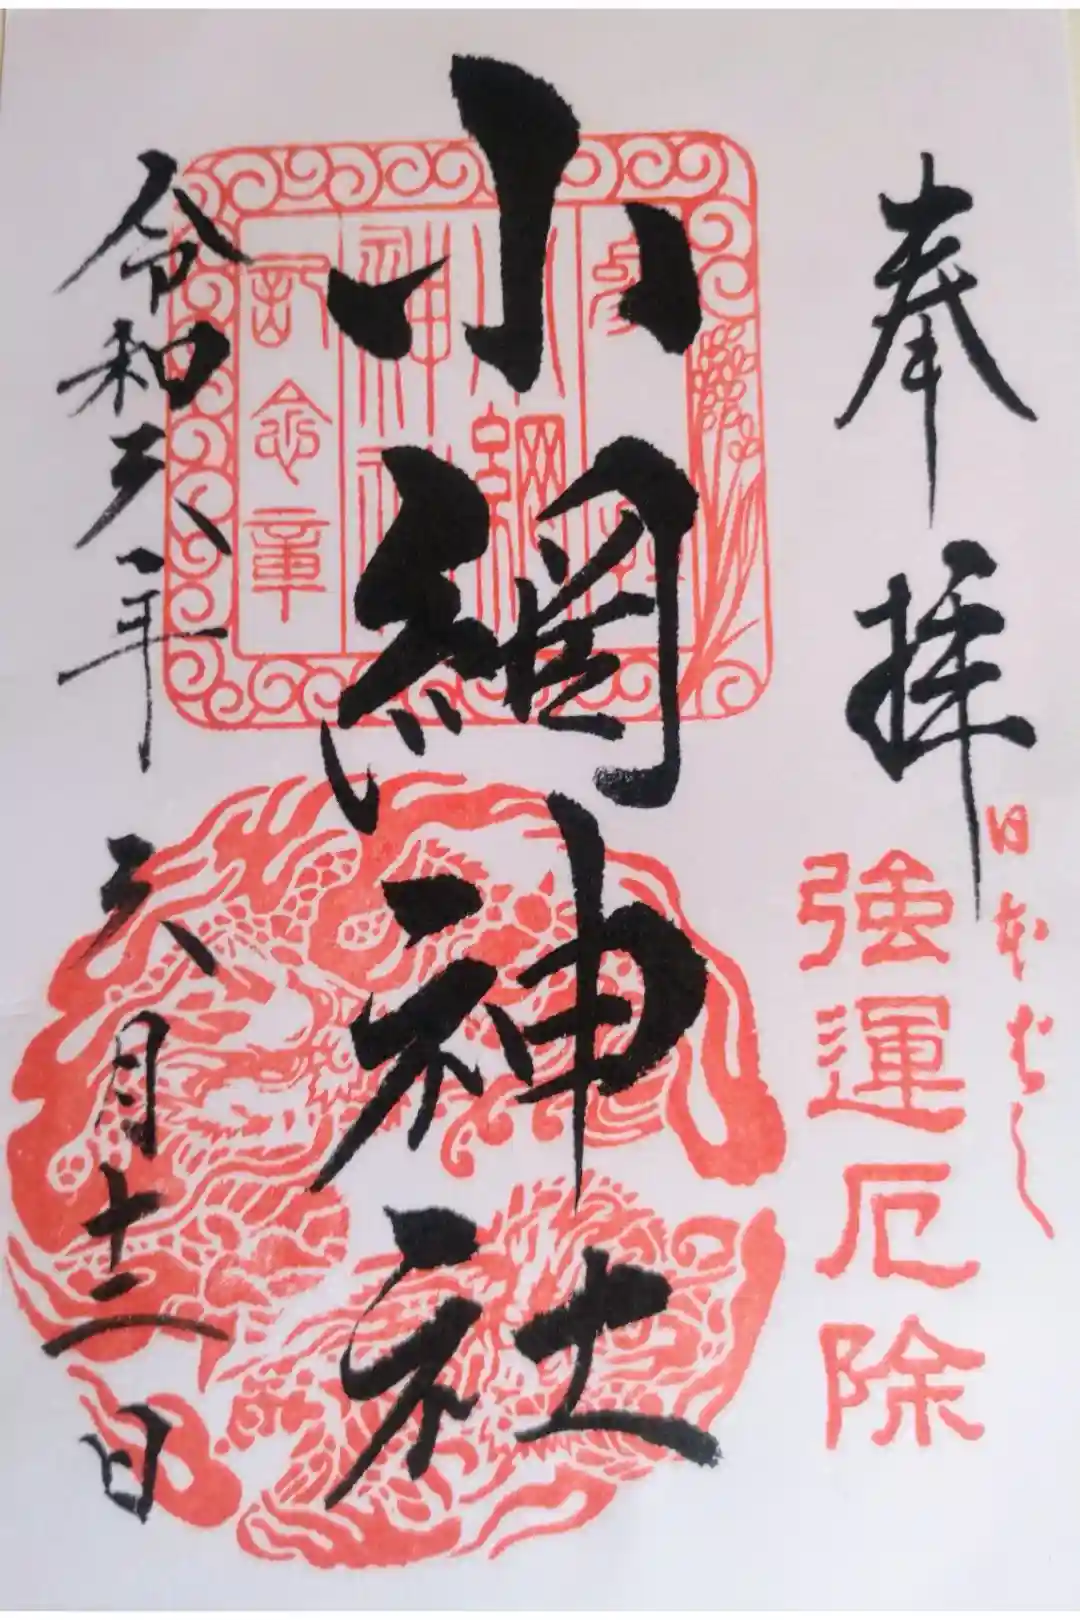 奉拝
日本ばし
強運厄除
小網神社
小網
神社
記念章
令和六年
六月十二日